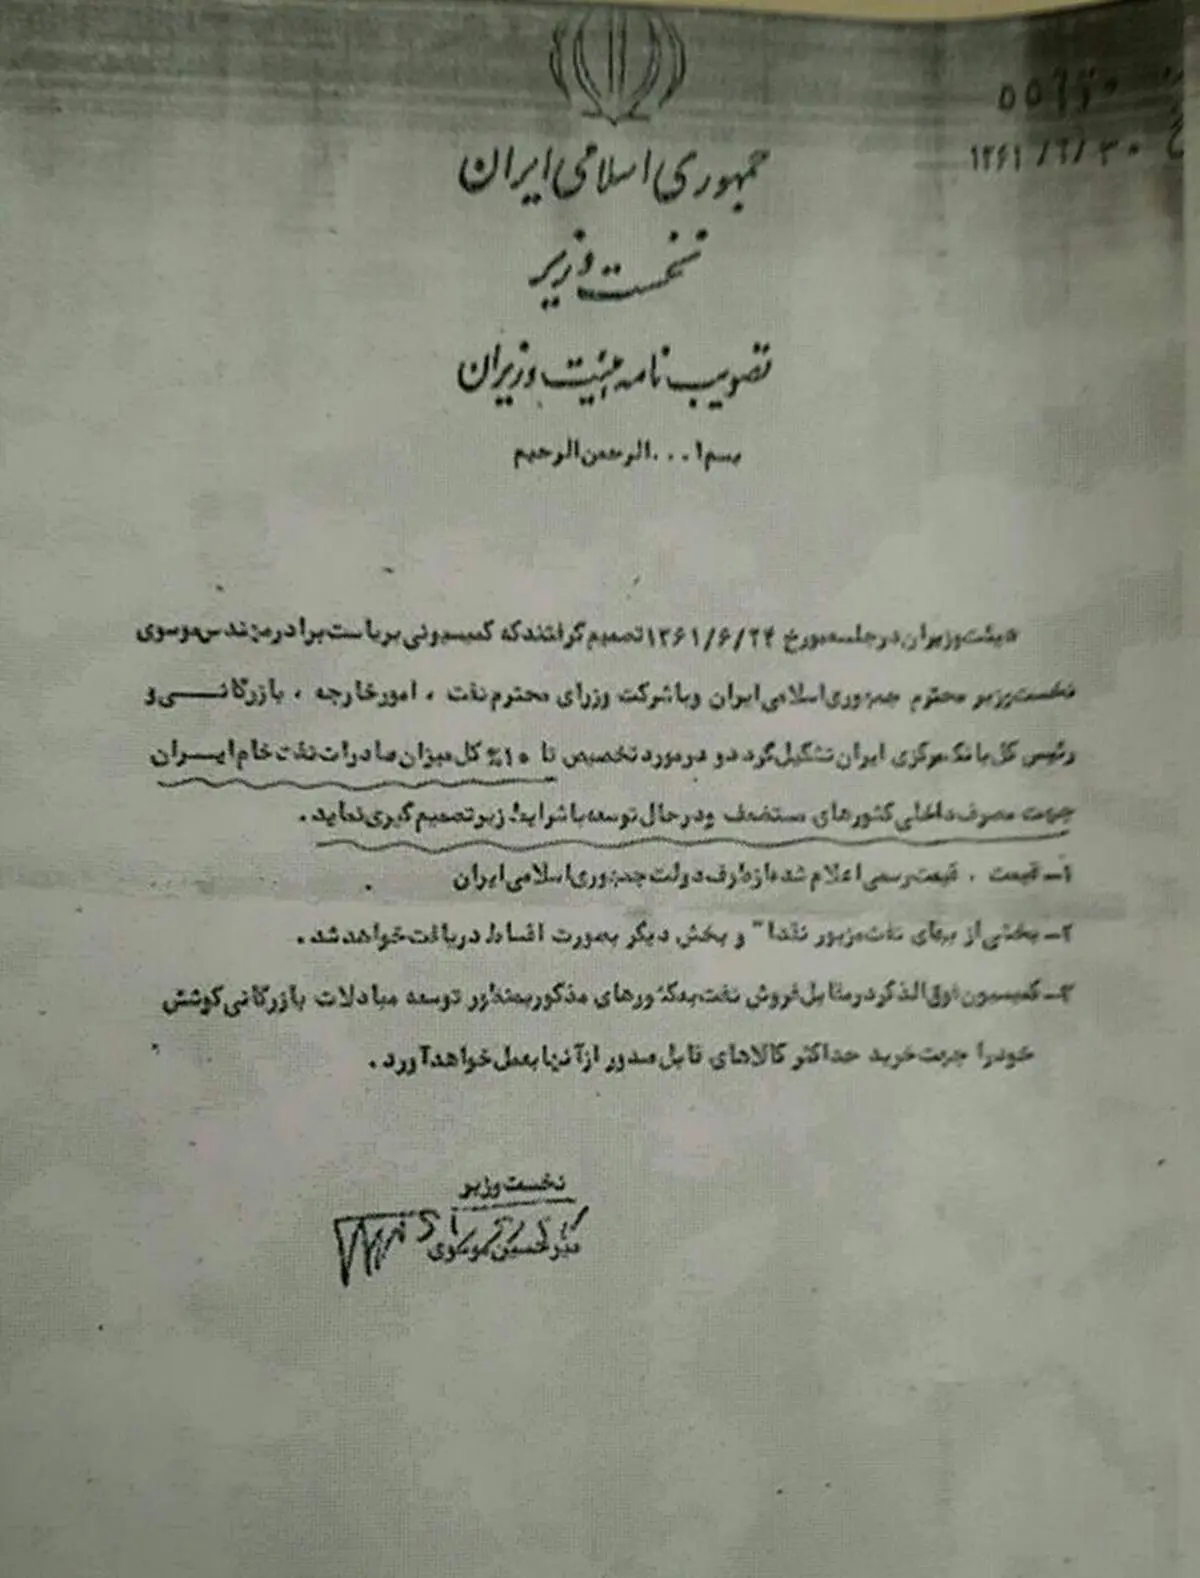 ۱۳۶۱/۶/۳۰
جمهوری اسلامی ایران
نخست وزیر
تصویب نامه هیئت وزیران
بسم ا...الرحمن الرحیم
هیئت وزیران در جلسه مورخ ۱۳۶۱/۶/۲۴ تصمیم گرفتند که کمیسیونی بریاست برادر مهندس موسوی
نخست وزیر محترم جمهوری اسلامی ایران وباشرکت وزرای محترم نفت ، امورخارجه ، بازرگانی و
رئیس کل بانک مرکزی ایران تشکیل گردد و درمورد تخصیص تا ۱۰% کل میزان صادرات نفت خام ایران
جهت مصرف داخلی کشورهای مستضعف ودرحال توسعه باشرایط زیر تصمیم گیری نماید.
۱ـ قیمت ، قیمت رسمی اعلام شده از طرف دولت جمهوری اسلامی ایران
۲ـ بخشی از بهای نفت مزبور نقدا" و بخش دیگر بصورت اقساط دریافت خواهد شد.
۳ـ کمیسیون فوق الذکر درمقابل فروش نفت به کشورهای مذکور بمنظور توسعه مبادلات بازرگانی کوشش
خودرا جهت خرید حداکثر کالاهای قابل صدور ازآنها بعمل خواهد آورد.
نخست وزیر
میرحسین موسوی